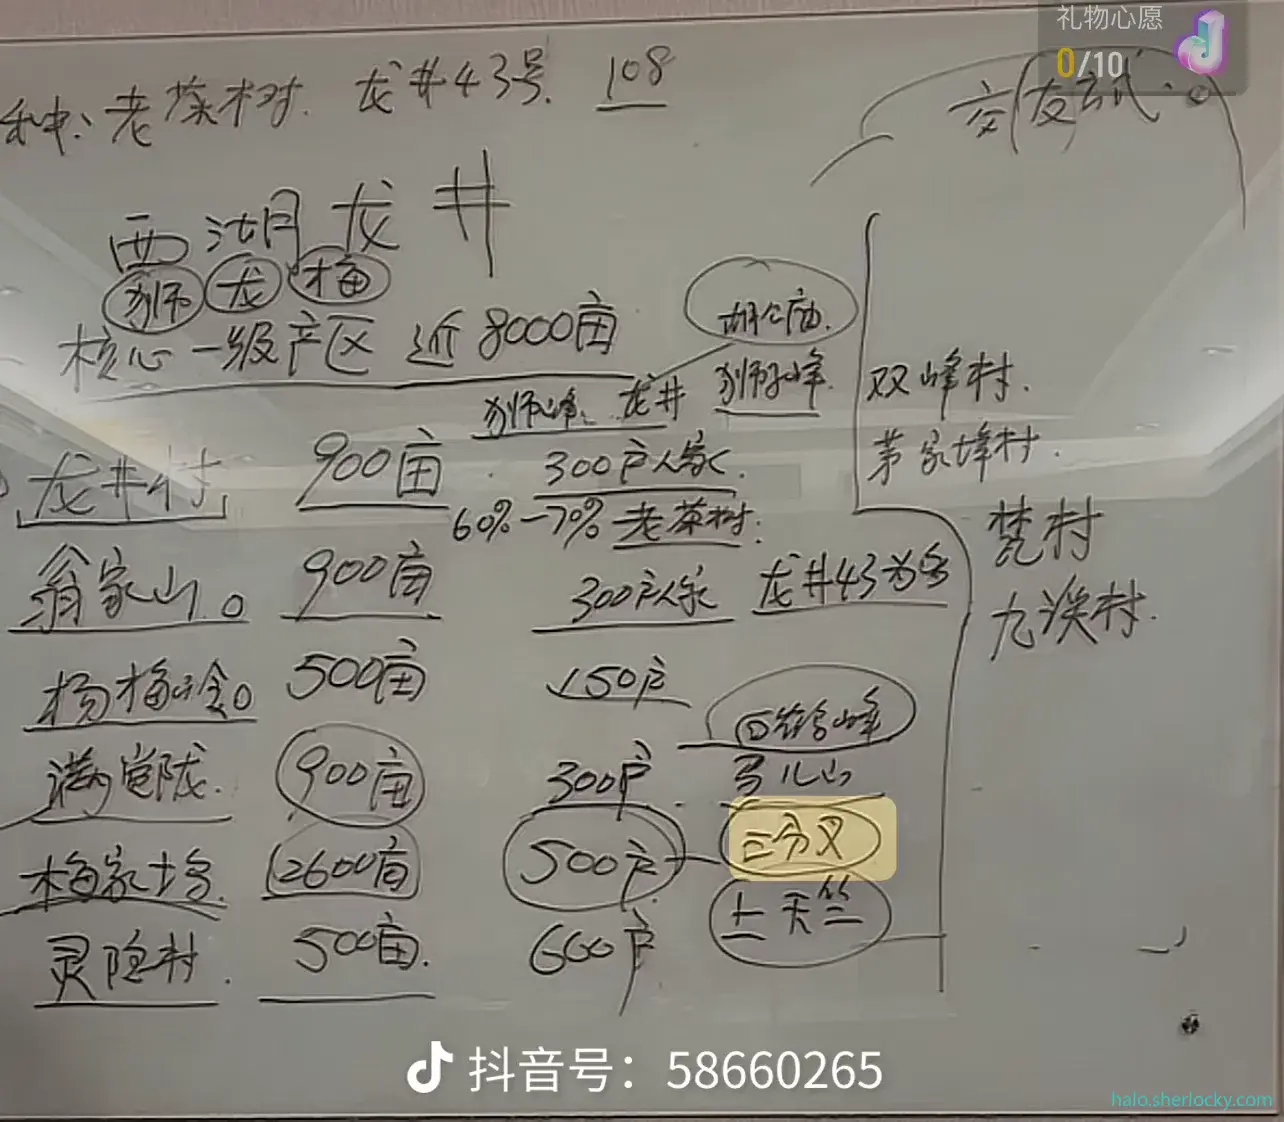 礼物心愿
0/10
种、老茶树. 龙井43号. 108
西湖龙井
狮 龙 梅
核心一级产区 近8000亩
胡公庙.
狮峰、龙井 狮峰
双峰村.
茅家埠村.
龙井村 900亩 300户人家.
60%-70% 老茶树.
梵村
九溪村.
翁家山. 900亩 300户人家 龙井43为多
杨梅岭 500亩 150户
满觉陇. 900亩 300户
马儿山
梅家坞. 2600亩 500户
三分叉
上天竺
灵隐村. 500亩. 600户
抖音号：58660265
halo.sherlocky.com